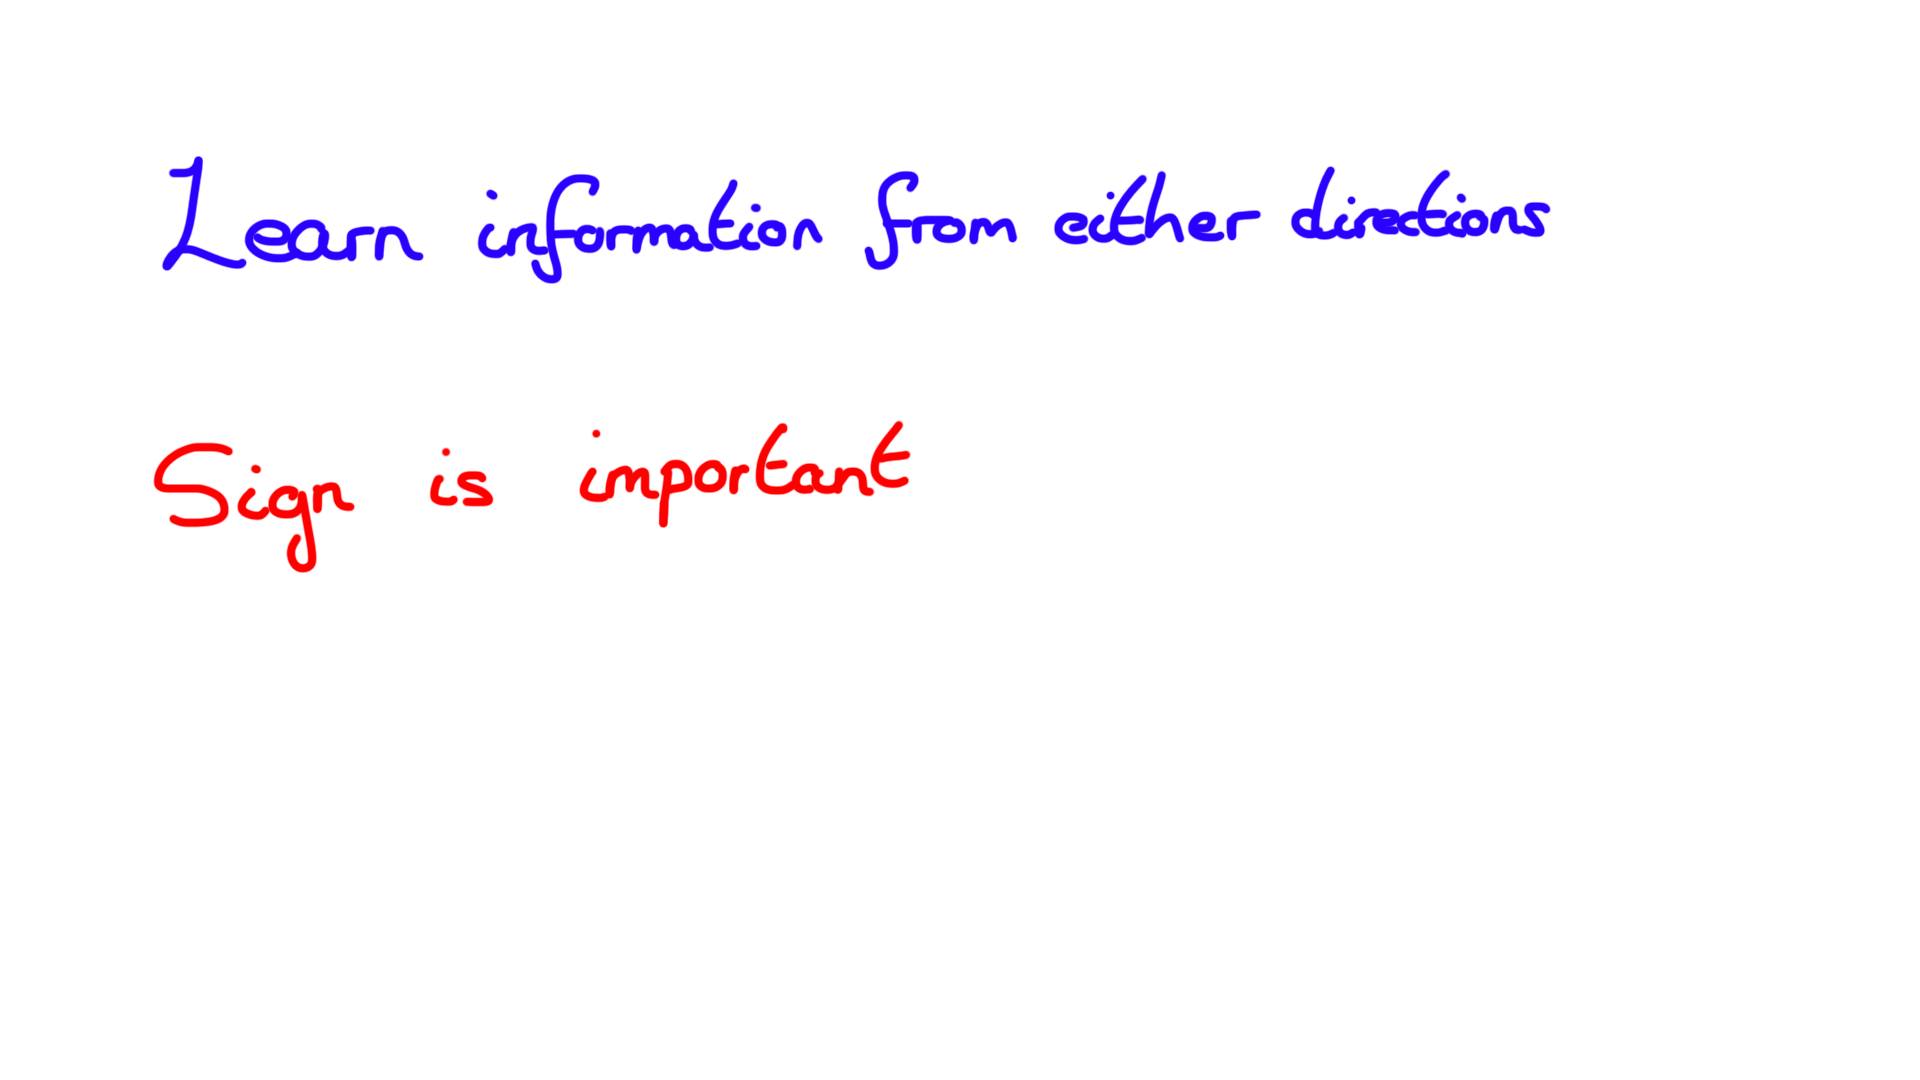 Learn information from either directions
Sign is important